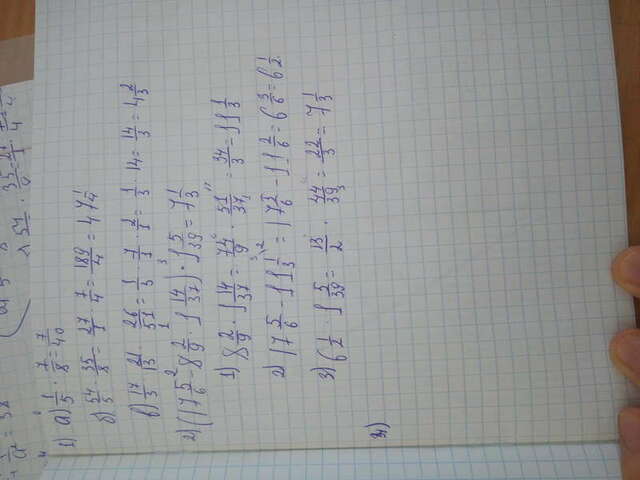 1) а) 1/5 · 7/8 = 7/40
б) 54/5 · 35/8 = 27/1 · 7/4 = 189/4 = 47 1/4
в) 17/3 · 21/13 · 26/51 = 1/3 · 7/1 · 2/1 = 1/3 · 14 = 14/3 = 4 2/3
2) (17 5/6 - 8 2/9 · 1 14/37) · 1 5/39 = 7 1/3
1) 8 2/9 · 1 14/37 = 74/9 · 51/37 = 34/3 = 11 1/3
2) 17 5/6 - 11 1/3 = 17 5/6 - 11 2/6 = 6 3/6 = 6 1/2
3) 6 1/2 · 1 5/39 = 13/2 · 44/39 = 22/3 = 7 1/3
3)